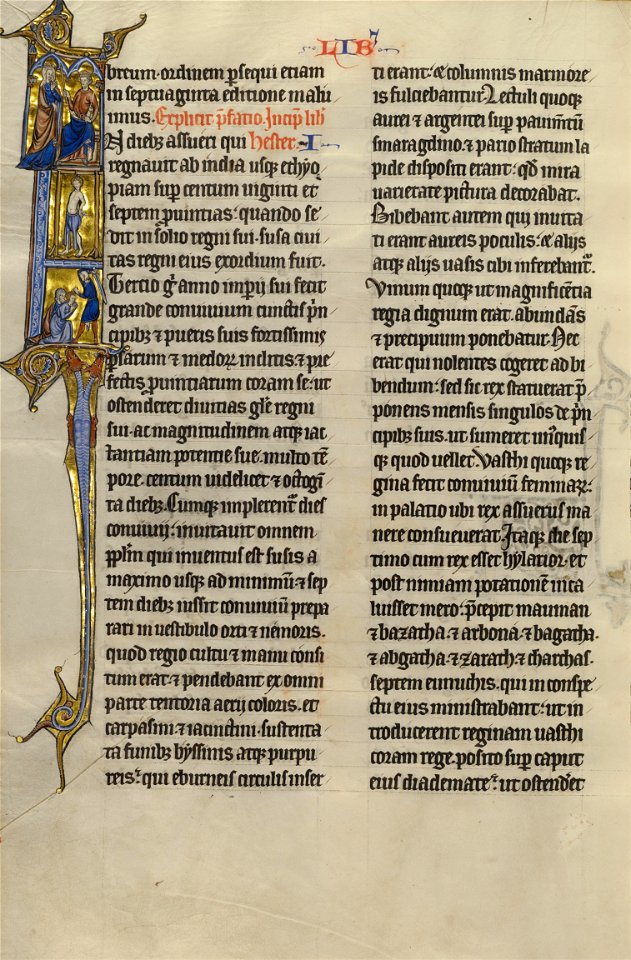 LIB'
breum ordinem p̱sequi etiam
in septuaginta editione malu
imus. Explicit p̄fatio. Incip̄ lib̄
N dieb; assueri qui Hester. I
regnavit ab india usq; ethyo
piam sup̱ centum viginti et
septem p̱uintias: quando se
dit in solio regni sui. susa ciui
tas regni eius exordium fuit.
Tercio gͥ anno imp̱ij sui fecit
grande conuiuium cunctis p̄n
cipib; et pueris suis fortissimis
p̱sarum ⁊ medoꝝ inclitis. ⁊ pre
fectis p̱uintiarum coram se: ut
ostenderet diuitias gl̄e regni
sui. ac magnitudinem atq; iac
tantiam potentie sue. multo tē
pore. centum uidelicet ⁊ octogī
ta dieb;. Cumq; implerent᷑ dies
conuiuij: inuitauit omnem
pp̄lm qui inuentus est susis a
maximo usq; ad minimū: ⁊ sep
tem dieb; iussit conuiuiū prepa
rari in uestibulo orti ⁊ nemoris.
quod regio cultu ⁊ manu consi
tum erat: ⁊ pendebant ex omni
parte tentoria aerij coloris. et
carpasini ⁊ iacinctini. sustenta
ta funib; byssinis atq; purpu
reis: qui eburneis circulis inser
ti erant: ⁊ columnis marmore
is fulciebantur. Lectuli quoq;
aurei ⁊ argentei sup̱ pauim̄tū
smaragdino. ⁊ pario stratum la
pide dispositi erant: qd̄ mira
uarietate pictura decorabat.
Bibebant autem qui inuita
ti erant aureis poculis: ⁊ alijs
atq; alijs uasis cibi inferebant᷑.
Vinum quoq; ut magnificētia
regia dignum erat. abundās
⁊ precipuum ponebatur. Nec
erat qui nolentes cogeret ad bi
bendum: sed sic rex statuerat p̄
ponens mensis singulos de p̄n
cipib; suis. ut sumeret un̄quis
q; quod uellet. Vasthi quoq; re
gina fecit conuiuiū feminaꝝ:
in palatio ubi rex assuerus ma
nere consueuerat. Itaq; die sep
timo cum rex esset hylarior. et
post nimiam potationē inca
luisset mero: p̄cepit mauman
⁊ bazatha. ⁊ arbona. ⁊ bagatha.
⁊ abgatha. ⁊ zarath. ⁊ charchas.
septem eunuchis. qui in conspe
ctu eius ministrabant: ut in
troducerent reginam uasthi
coram rege. posito sup̱ caput
eius diademate: ut ostend̄et